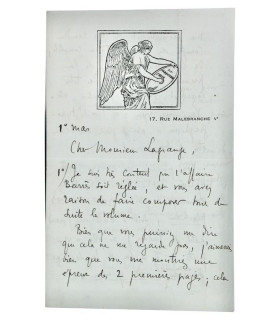 17, RUE MALEBRANCHE Vᵉ
1ᵉʳ mars
Cher Monsieur Lagrange,
1°/ Je suis très content que l'affaire
Barrès soit réglée, et vous avez
raison de faire composer tout de
suite le volume.
Bien que vous puissiez me dire
que cela ne me regarde pas, j'aimerais
bien que vous me montriez une
épreuve des 2 premières pages ; cela